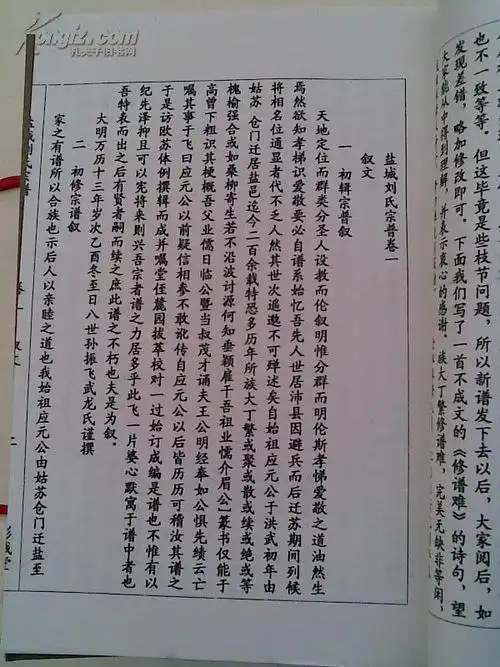 也不一致等等。但这毕竟是些枝节问题，所以新谱发下去以后，大家阅后，如
发现差错，略加修改即可。下面我们写了一首不成文的《修谱难》的诗句，望
大家能从中得到理解，并表示衷心的感谢。族大丁繁修谱难，完美无缺非等闲，
盐城刘氏宗普卷一
叙文
一 初辑宗普叙
天地定位而群类分圣人设教而伦叙明惟分群而明伦斯孝悌爱敬之道油然生
焉然欲知孝悌识爱敬要必自谱系始忆吾先人世居沛县因避兵而后迁苏期间列候
将相名位通显者代不乏人然其世次遥邈不可殚述矣自始祖应元公于洪武初年由
姑苏 仓门迁居盐邑迄今二百余载特恐多历年所族大丁繁或聚或散或续或绝或等
槐榆强合或如桑柳寄生若不沿波讨源何知垂颖雇千吾祖业懦介眉公]篆书仅能于
高曾下粗识其梗概吾父业儒日临公暨当叔茂才诵夫王公明经奉如公惧先绩云亡
嘱其事于飞曰应元公以前疑信相参不敢讹传自应元公以后皆历历可稽汝其谱之
于是访欧苏体例撰辑而成并嘱堂侄麓园拔萃校对一过始订成编是谱也不惟有以
纪先泽抑且可以宪将来则兴吾宗者谱之力居多乎此飞一片婆心默寓于谱中者也
吾特表而出之后有贤者嗣而续之庶此谱之不朽也夫是为叙。
大明万历十三年岁次乙酉冬至日八世孙振飞武龙氏谨撰
二 初修宗谱叙
家之有谱所以合族也示后人以亲睦之道也我始祖应元公由姑苏仓门迁盐至
卷一 叙文
二
彭城堂
kongfz.com
孔夫子旧书网